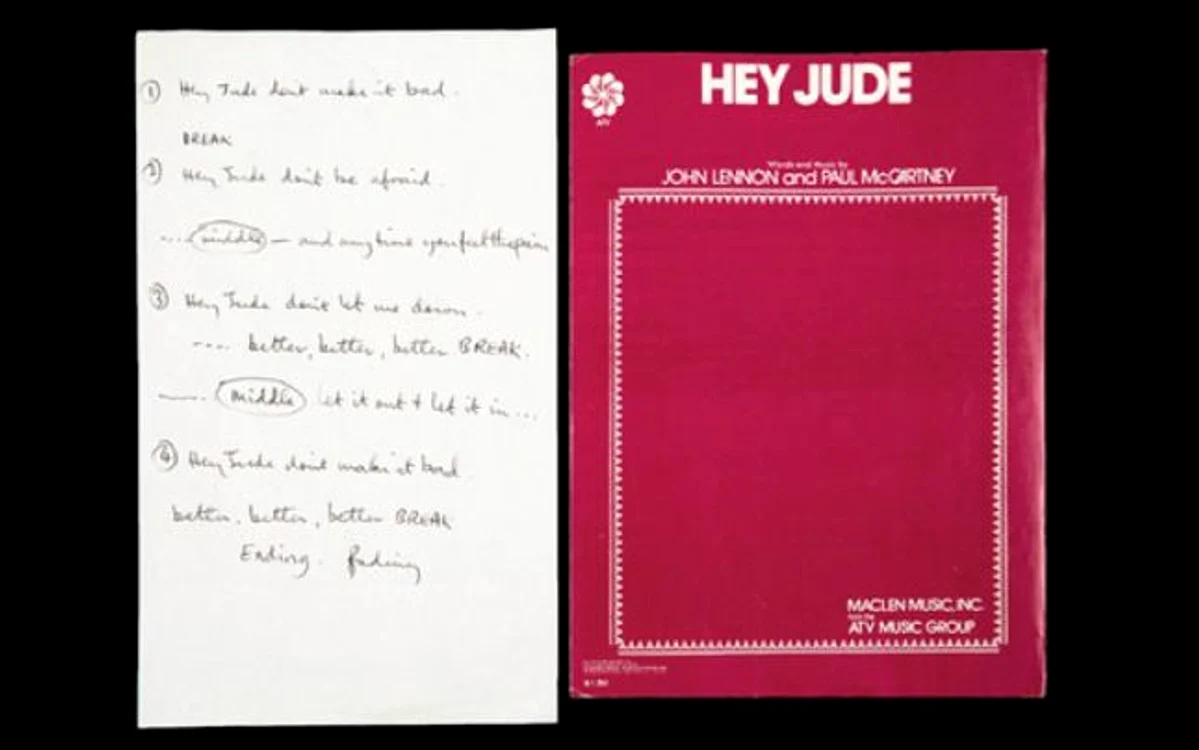 ① Hey Jude don't make it bad.
BREAK
② Hey Jude don't be afraid.
.... middle — and anytime you feel the pain
③ Hey Jude don't let me down.
.... better, better, better BREAK.
middle let it out + let it in ...
④ Hey Jude don't make it bad
better, better, better BREAK
Ending. fading
HEY JUDE
ATV
Words and Music by
JOHN LENNON and PAUL McCARTNEY
MACLEN MUSIC, INC.
ATV MUSIC GROUP